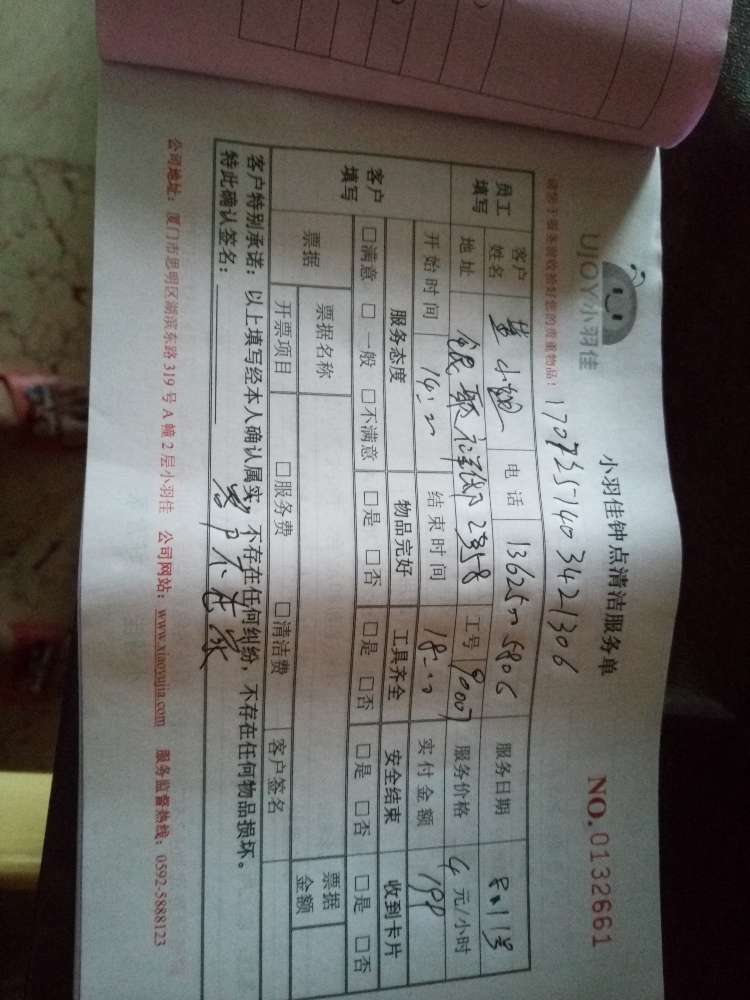 UJOY小羽佳
小羽佳钟点清洁服务单
NO.0132661
请您于服务前收拾好您的贵重物品!
员工填写 客户姓名 小姐 电话 服务日期 8.11号
地址 工号 9007 服务价格 4 元/小时
开始时间 14:00 结束时间 18:00 实付金额 199
客户填写 服务态度 物品完好 工具齐全 安全结束 收到卡片
□满意 □一般 □不满意 □是 □否 □是 □否 □是 □否 □是 □否
票据 票据名称 票据金额
开票项目 □服务费 □清洁费 客户签名
客户特别承诺:以上填写经本人确认属实,不存在任何纠纷,不存在任何物品损坏。
特此确认签名: 客户不在家
公司地址:厦门市思明区湖滨东路319号A幢2层小羽佳 公司网站:www.xiaoyujia.com 服务监督热线:0592-5888123